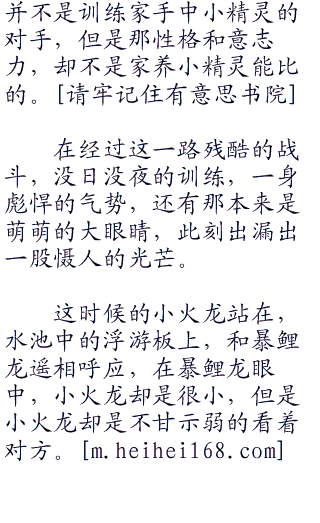 并不是训练家手中小精灵的
对手，但是那性格和意志
力，却不是家养小精灵能比
的。[请牢记住有意思书院]
在经过这一路残酷的战
斗，没日没夜的训练，一身
彪悍的气势，还有那本来是
萌萌的大眼睛，此刻出漏出
一股慑人的光芒。
这时候的小火龙站在，
水池中的浮游板上，和暴鲤
龙遥相呼应，在暴鲤龙眼
中，小火龙却是很小，但是
小火龙却是不甘示弱的看着
对方。[m.heihei168.com]